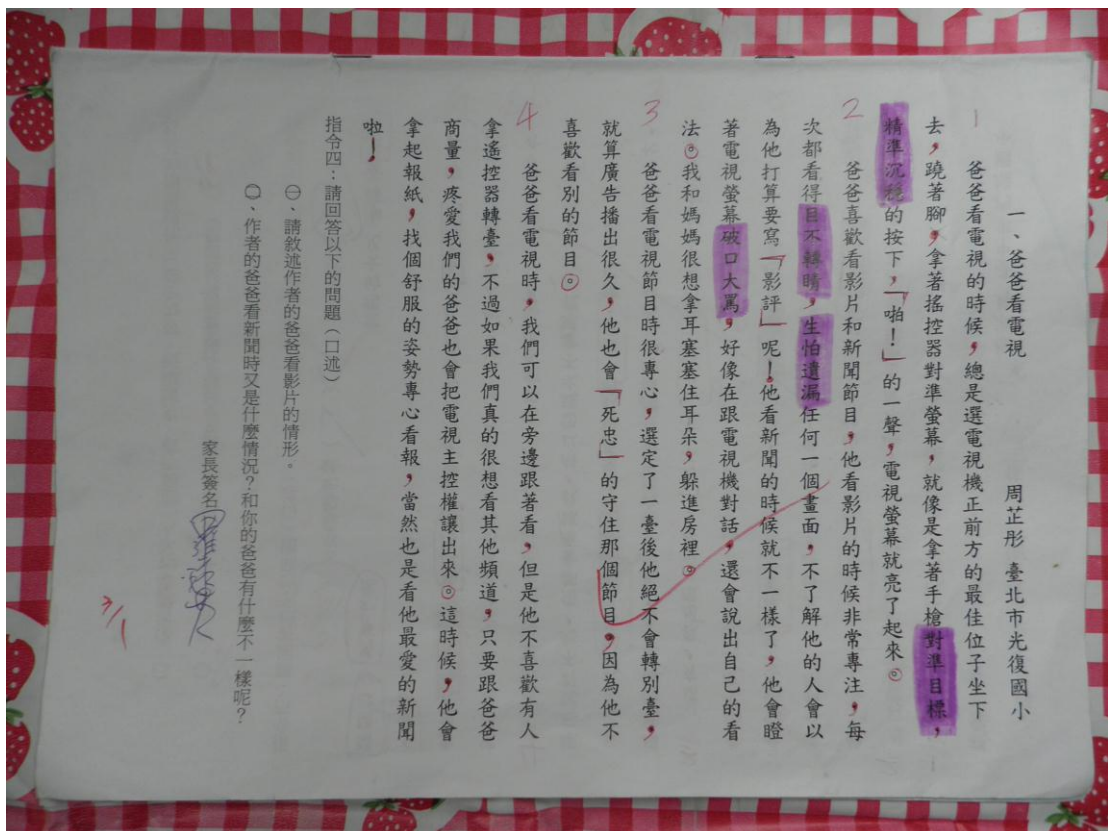 一、爸爸看電視
周芷彤 臺北市光復國小
1
爸爸看電視的時候，總是選電視機正前方的最佳位子坐下
去，蹺著腳，拿著搖控器對準螢幕，就像是拿著手槍對準目標，
精準沉穩的按下，「啪！」的一聲，電視螢幕就亮了起來。
2
爸爸喜歡看影片和新聞節目，他看影片的時候非常專注，每
次都看得目不轉睛，生怕遺漏任何一個畫面，不了解他的人會以
為他打算要寫「影評」呢！他看新聞的時候就不一樣了，他會瞪
著電視螢幕破口大罵，好像在跟電視機對話，還會說出自己的看
法。我和媽媽很想拿耳塞塞住耳朵，躲進房裡。
3
爸爸看電視節目時很專心，選定了一臺後他絕不會轉別臺，
就算廣告播出很久，他也會「死忠」的守住那個節目，因為他不
喜歡看別的節目。
4
爸爸看電視時，我們可以在旁邊跟著看，但是他不喜歡有人
拿遙控器轉臺，不過如果我們真的很想看其他頻道，只要跟爸爸
商量，疼愛我們的爸爸也會把電視主控權讓出來。這時候，他會
拿起報紙，找個舒服的姿勢專心看報，當然也是看他最愛的新聞
啦！
指令四：請回答以下的問題（口述）
㊀、請敘述作者的爸爸看影片的情形。
㊁、作者的爸爸看新聞時又是什麼情況？和你的爸爸有什麼不一樣呢？
家長簽名